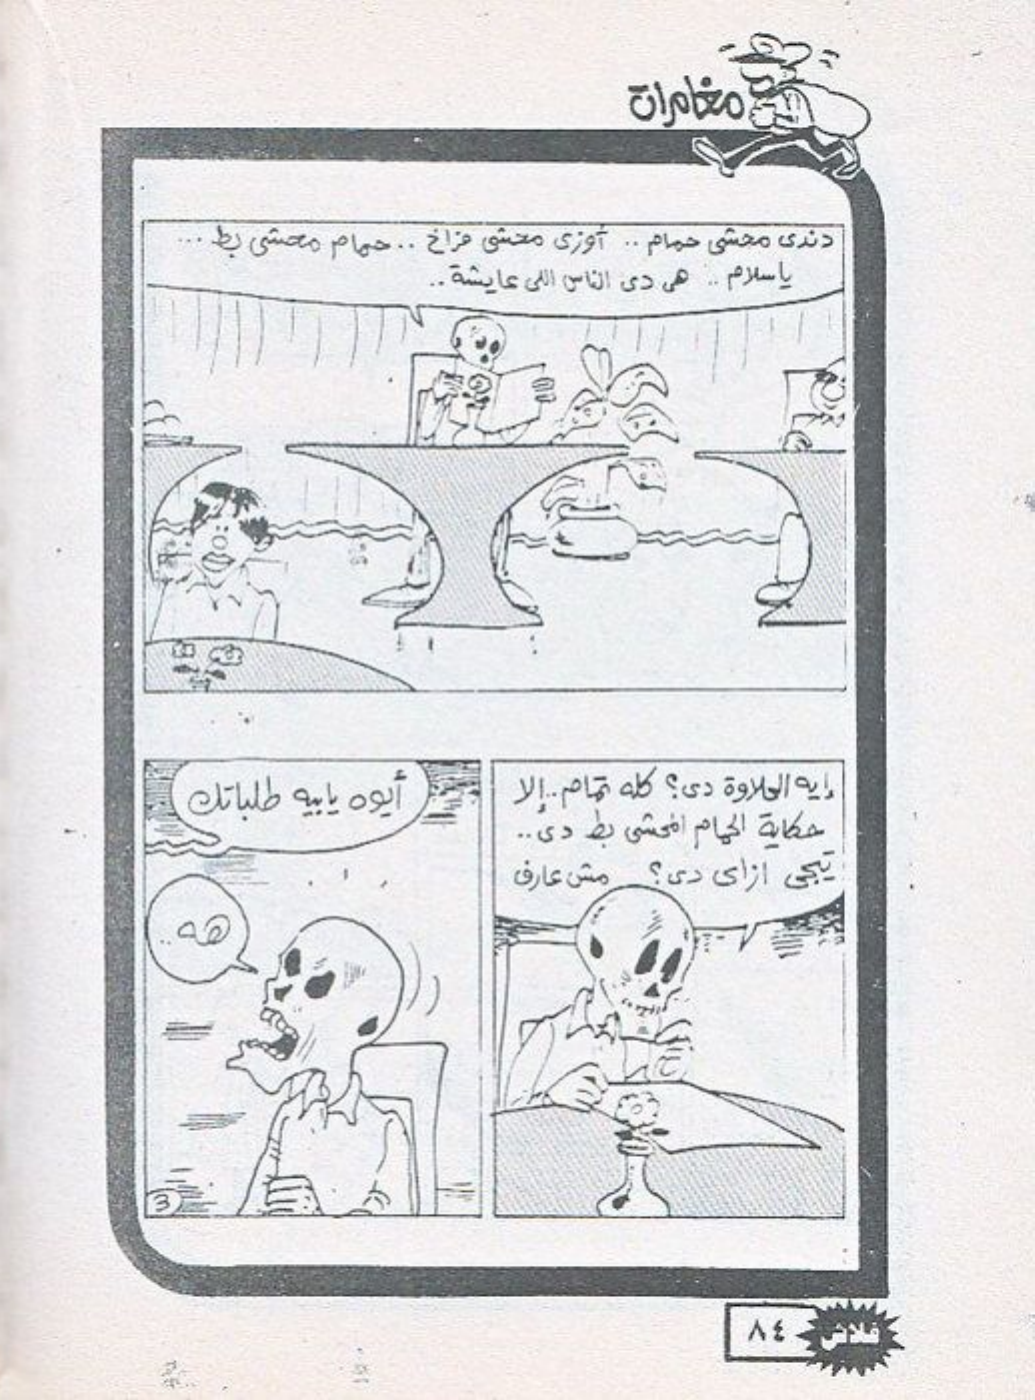 مغامرات
دندى محشى حمام .. أوزى محشى فراخ .. حمام محشى بط ...
ياسلام .. هى دى الناس اللى عايشة ..
إيه الحلاوة دى؟ كله تمام .. إلا
حكاية الحمام المحشى بط دى ..
تيجى ازاى دى؟ مش عارف
أيوه يابيه طلباتك
هه
3
فلاش
٨٤